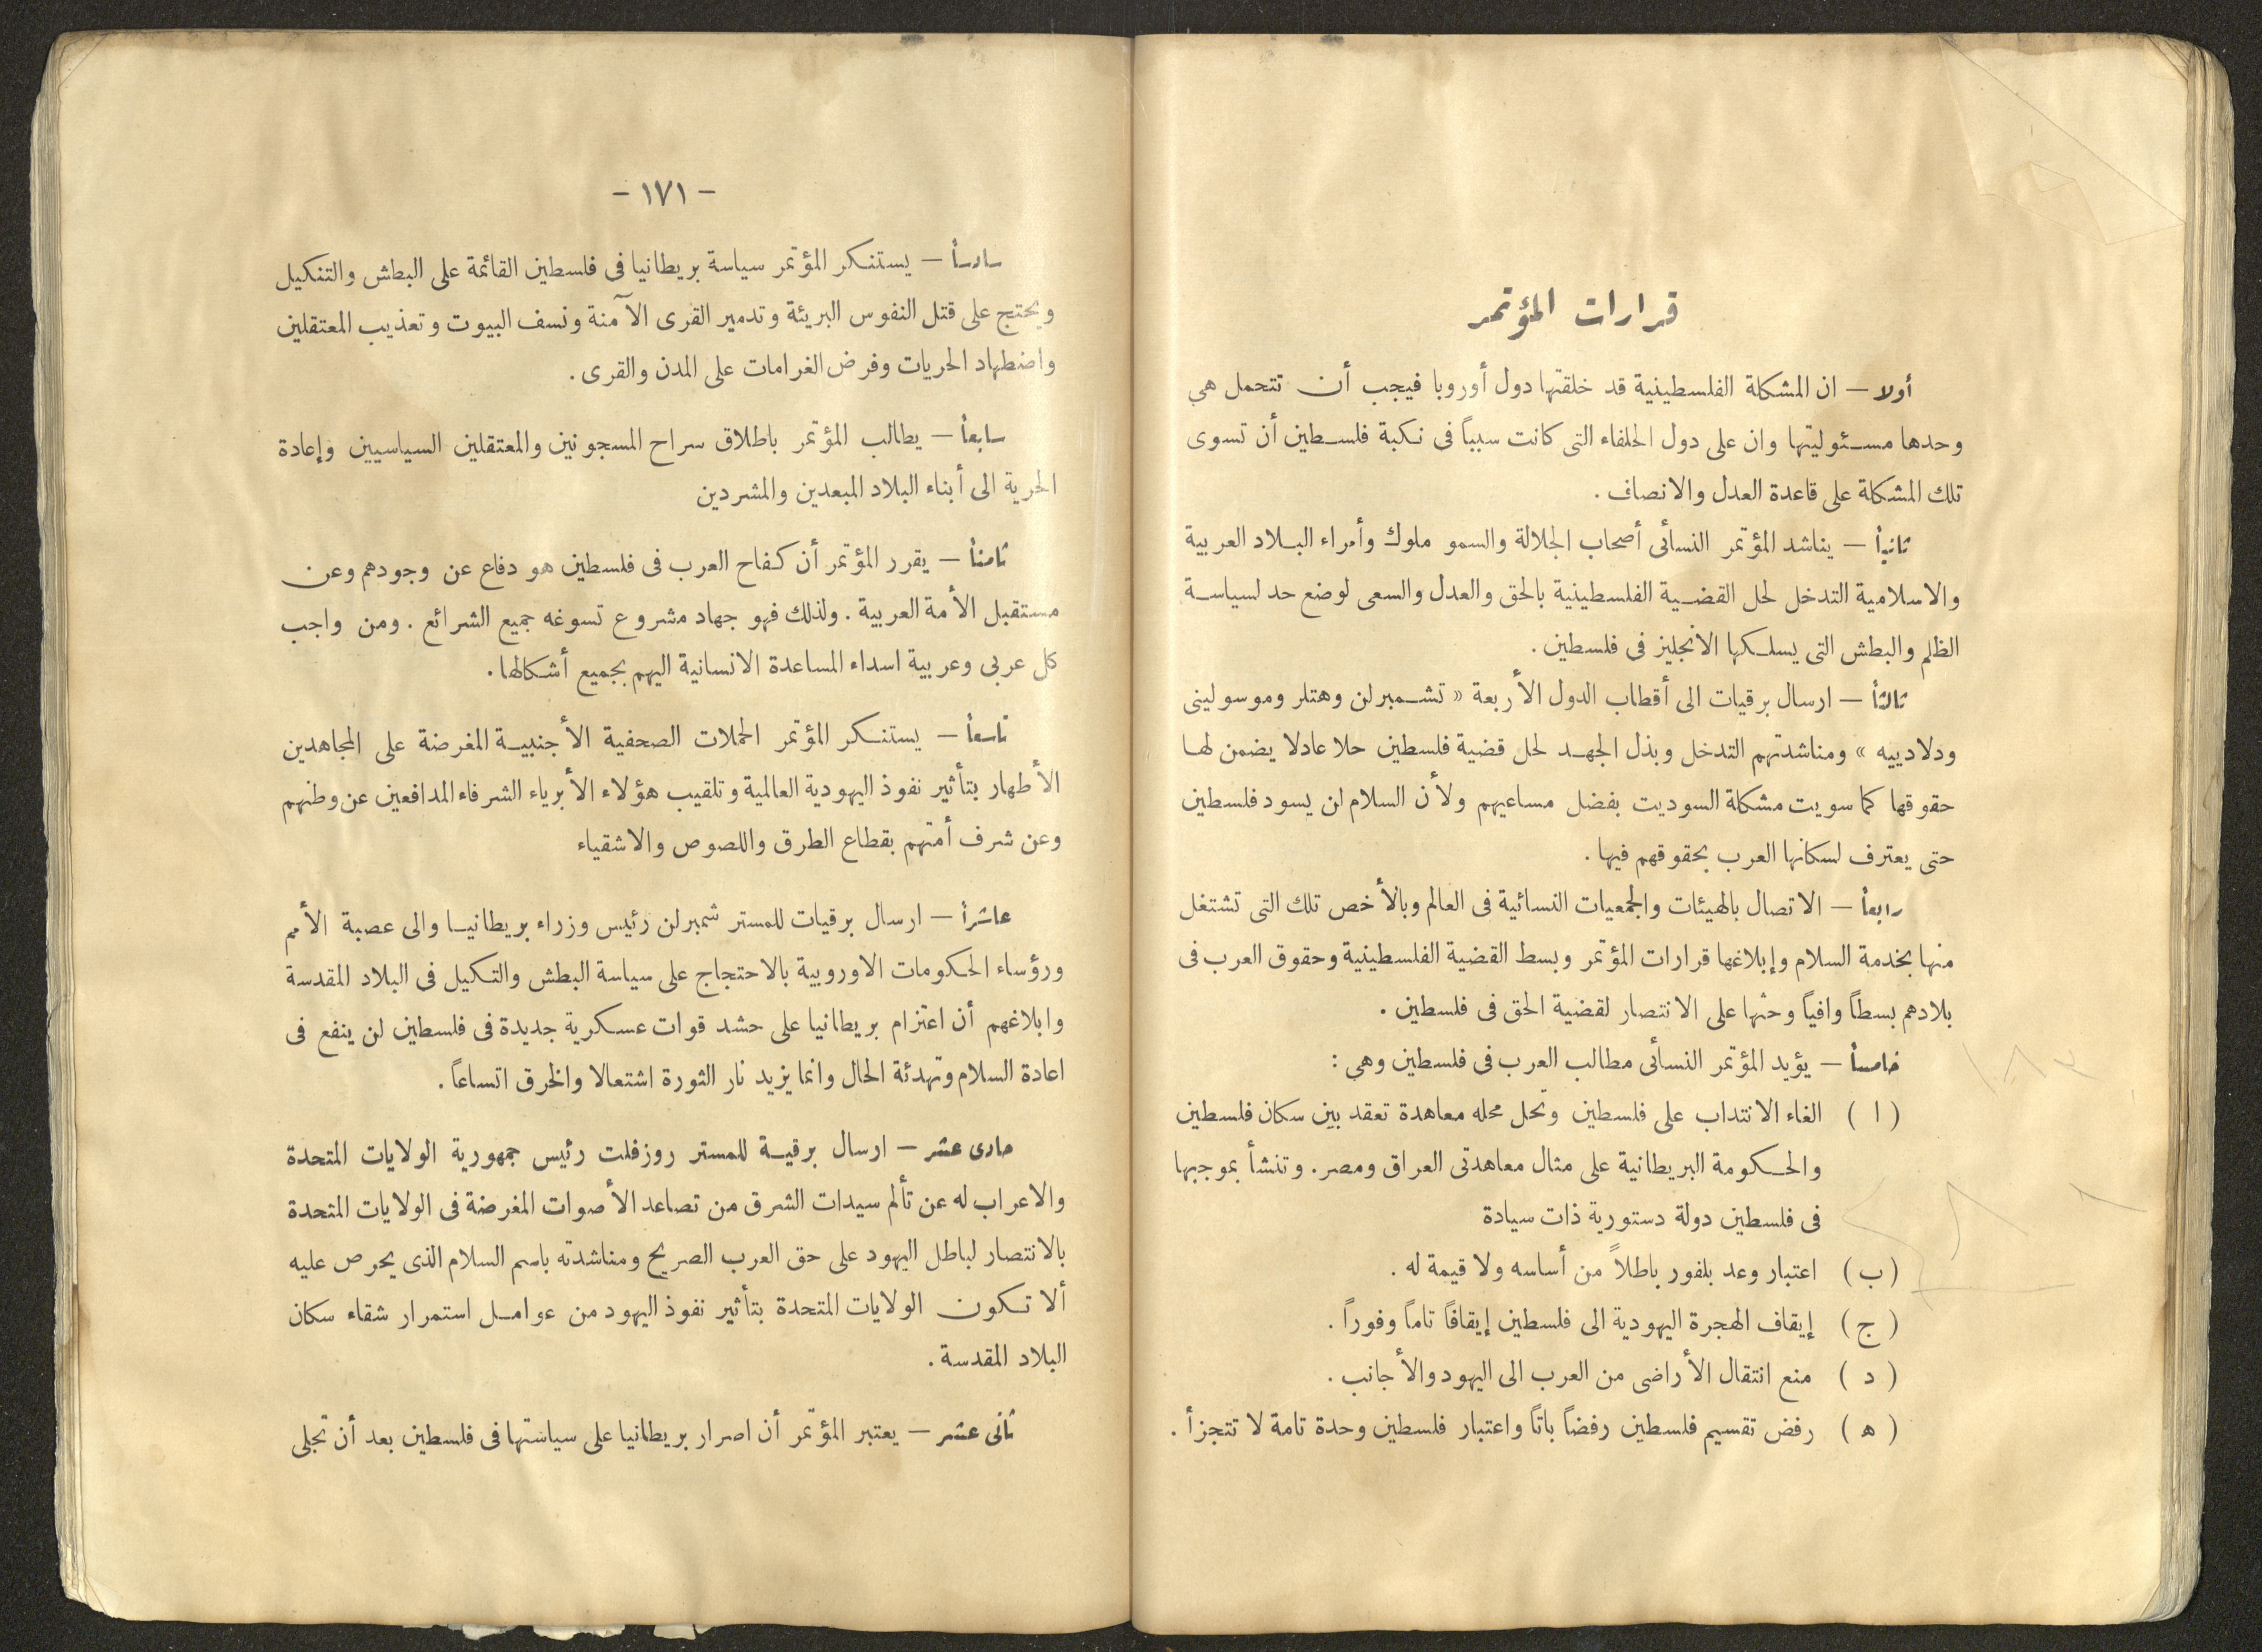 قرارات المؤتمر
أولا — ان المشكلة الفلسطينية قد خلقتها دول أوروبا فيجب أن تتحمل هي
وحدها مسئوليتها وان على دول الحلفاء التى كانت سبباً فى نكبة فلسطين أن تسوى
تلك المشكلة على قاعدة العدل والانصاف .
ثانياً — يناشد المؤتمر النسأئى أصحاب الجلالة والسمو ملوك وأمراء البلاد العربية
والاسلامية التدخل لحل القضية الفلسطينية بالحق والعدل والسعى لوضع حد لسياسة
الظلم والبطش التى يسلكها الانجليز فى فلسطين .
ثالثاً — ارسال برقيات الى أقطاب الدول الأربعة « تشمبرلن وهتلر وموسولينى
ودلادييه » ومناشدتهم التدخل وبذل الجهد لحل قضية فلسطين حلا عادلا يضمن لها
حقوقها كما سويت مشكلة السوديت بفضل مساعيهم ولأن السلام لن يسود فلسطين
حتى يعترف لسكانها العرب بحقوقهم فيها .
رابعاً — الاتصال بالهيئات والجمعيات النسائية فى العالم وبالأخص تلك التى تشتغل
منها بخدمة السلام وإبلاغها قرارات المؤتمر وبسط القضية الفلسطينية وحقوق العرب فى
بلادهم بسطاً وافياً وحثها على الانتصار لقضية الحق فى فلسطين .
خامساً — يؤيد المؤتمر النسأئى مطالب العرب فى فلسطين وهي :
( ا ) الغاء الانتداب على فلسطين وتحل محله معاهدة تعقد بين سكان فلسطين
والحكومة البريطانية على مثال معاهدتى العراق ومصر . وتنشأ بموجبها
فى فلسطين دولة دستورية ذات سيادة
( ب ) اعتبار وعد بلفور باطلاً من أساسه ولا قيمة له .
( ج ) إيقاف الهجرة اليهودية الى فلسطين إيقافاً تاماً وفوراً .
( د ) منع انتقال الأراضى من العرب الى اليهود والأجانب .
( ه ) رفض تقسيم فلسطين رفضاً باتاً واعتبار فلسطين وحدة تامة لا تتجزأ .
— ١٧١ —
سادساً — يستنكر المؤتمر سياسة بريطانيا فى فلسطين القائمة على البطش والتنكيل
ويحتج على قتل النفوس البريئة وتدمير القرى الآمنة ونسف البيوت وتعذيب المعتقلين
واضطهاد الحريات وفرض الغرامات على المدن والقرى .
سابعاً — يطالب المؤتمر باطلاق سراح المسجونين والمعتقلين السياسيين وإعادة
الحرية الى أبناء البلاد المبعدين والمشردين
ثامناً — يقرر المؤتمر أن كفاح العرب فى فلسطين هو دفاع عن وجودهم وعن
مستقبل الأمة العربية . ولذلك فهو جهاد مشروع تسوغه جميع الشرائع . ومن واجب
كل عربى وعربية اسداء المساعدة الانسانية اليهم بجميع أشكالها .
تاسعاً — يستنكر المؤتمر الحملات الصحفية الأجنبية المغرضة على المجاهدين
الأطهار بتأثير نفوذ اليهودية العالمية وتلقيب هؤلاء الأبرياء الشرفاء المدافعين عن وطنهم
وعن شرف أمتهم بقطاع الطرق واللصوص والاشقياء
عاشراً — ارسال برقيات للمستر شمبرلن رئيس وزراء بريطانيا والى عصبة الأمم
ورؤساء الحكومات الاوروبية بالاحتجاج على سياسة البطش والتكيل فى البلاد المقدسة
وابلاغهم أن اعتزام بريطانيا على حشد قوات عسكرية جديدة فى فلسطين لن ينفع فى
اعادة السلام وتهدئة الحال وانما يزيد نار الثورة اشتعالا والخرق اتساعاً .
حادى عشر — ارسال برقية للمستر روزفلت رئيس جمهورية الولايات المتحدة
والاعراب له عن تألم سيدات الشرق من تصاعد الأصوات المغرضة فى الولايات المتحدة
بالانتصار لباطل اليهود على حق العرب الصريح ومناشدته باسم السلام الذى يحرص عليه
ألا تكون الولايات المتحدة بتأثير نفوذ اليهود من عوامل استمرار شقاء سكان
البلاد المقدسة .
ثانى عشر — يعتبر المؤتمر أن اصرار بريطانيا على سياستها فى فلسطين بعد أن تجلى